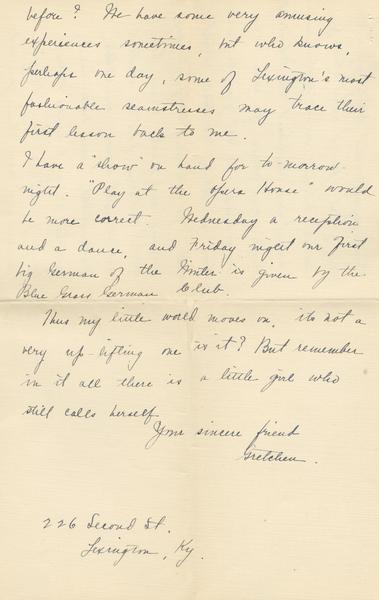 before? We have some very amusing
experiences sometimes, but who knows,
perhaps one day, some of Lexington's most
fashionable seamstresses may trace their
first lesson back to me.
I have a "show" on hand for to-morrow
night. "Play at the Opera House" would
be more correct. Wednesday a reception
and a dance, and Friday night our first
big German of the Winter is given by the
Blue Grass German Club.
Thus my little world moves on, its not a
very up-lifting one is it? But remember
in it all there is a little girl who
still calls herself
Your sincere friend
Gretchen.
226 Second St.
Lexington, Ky.